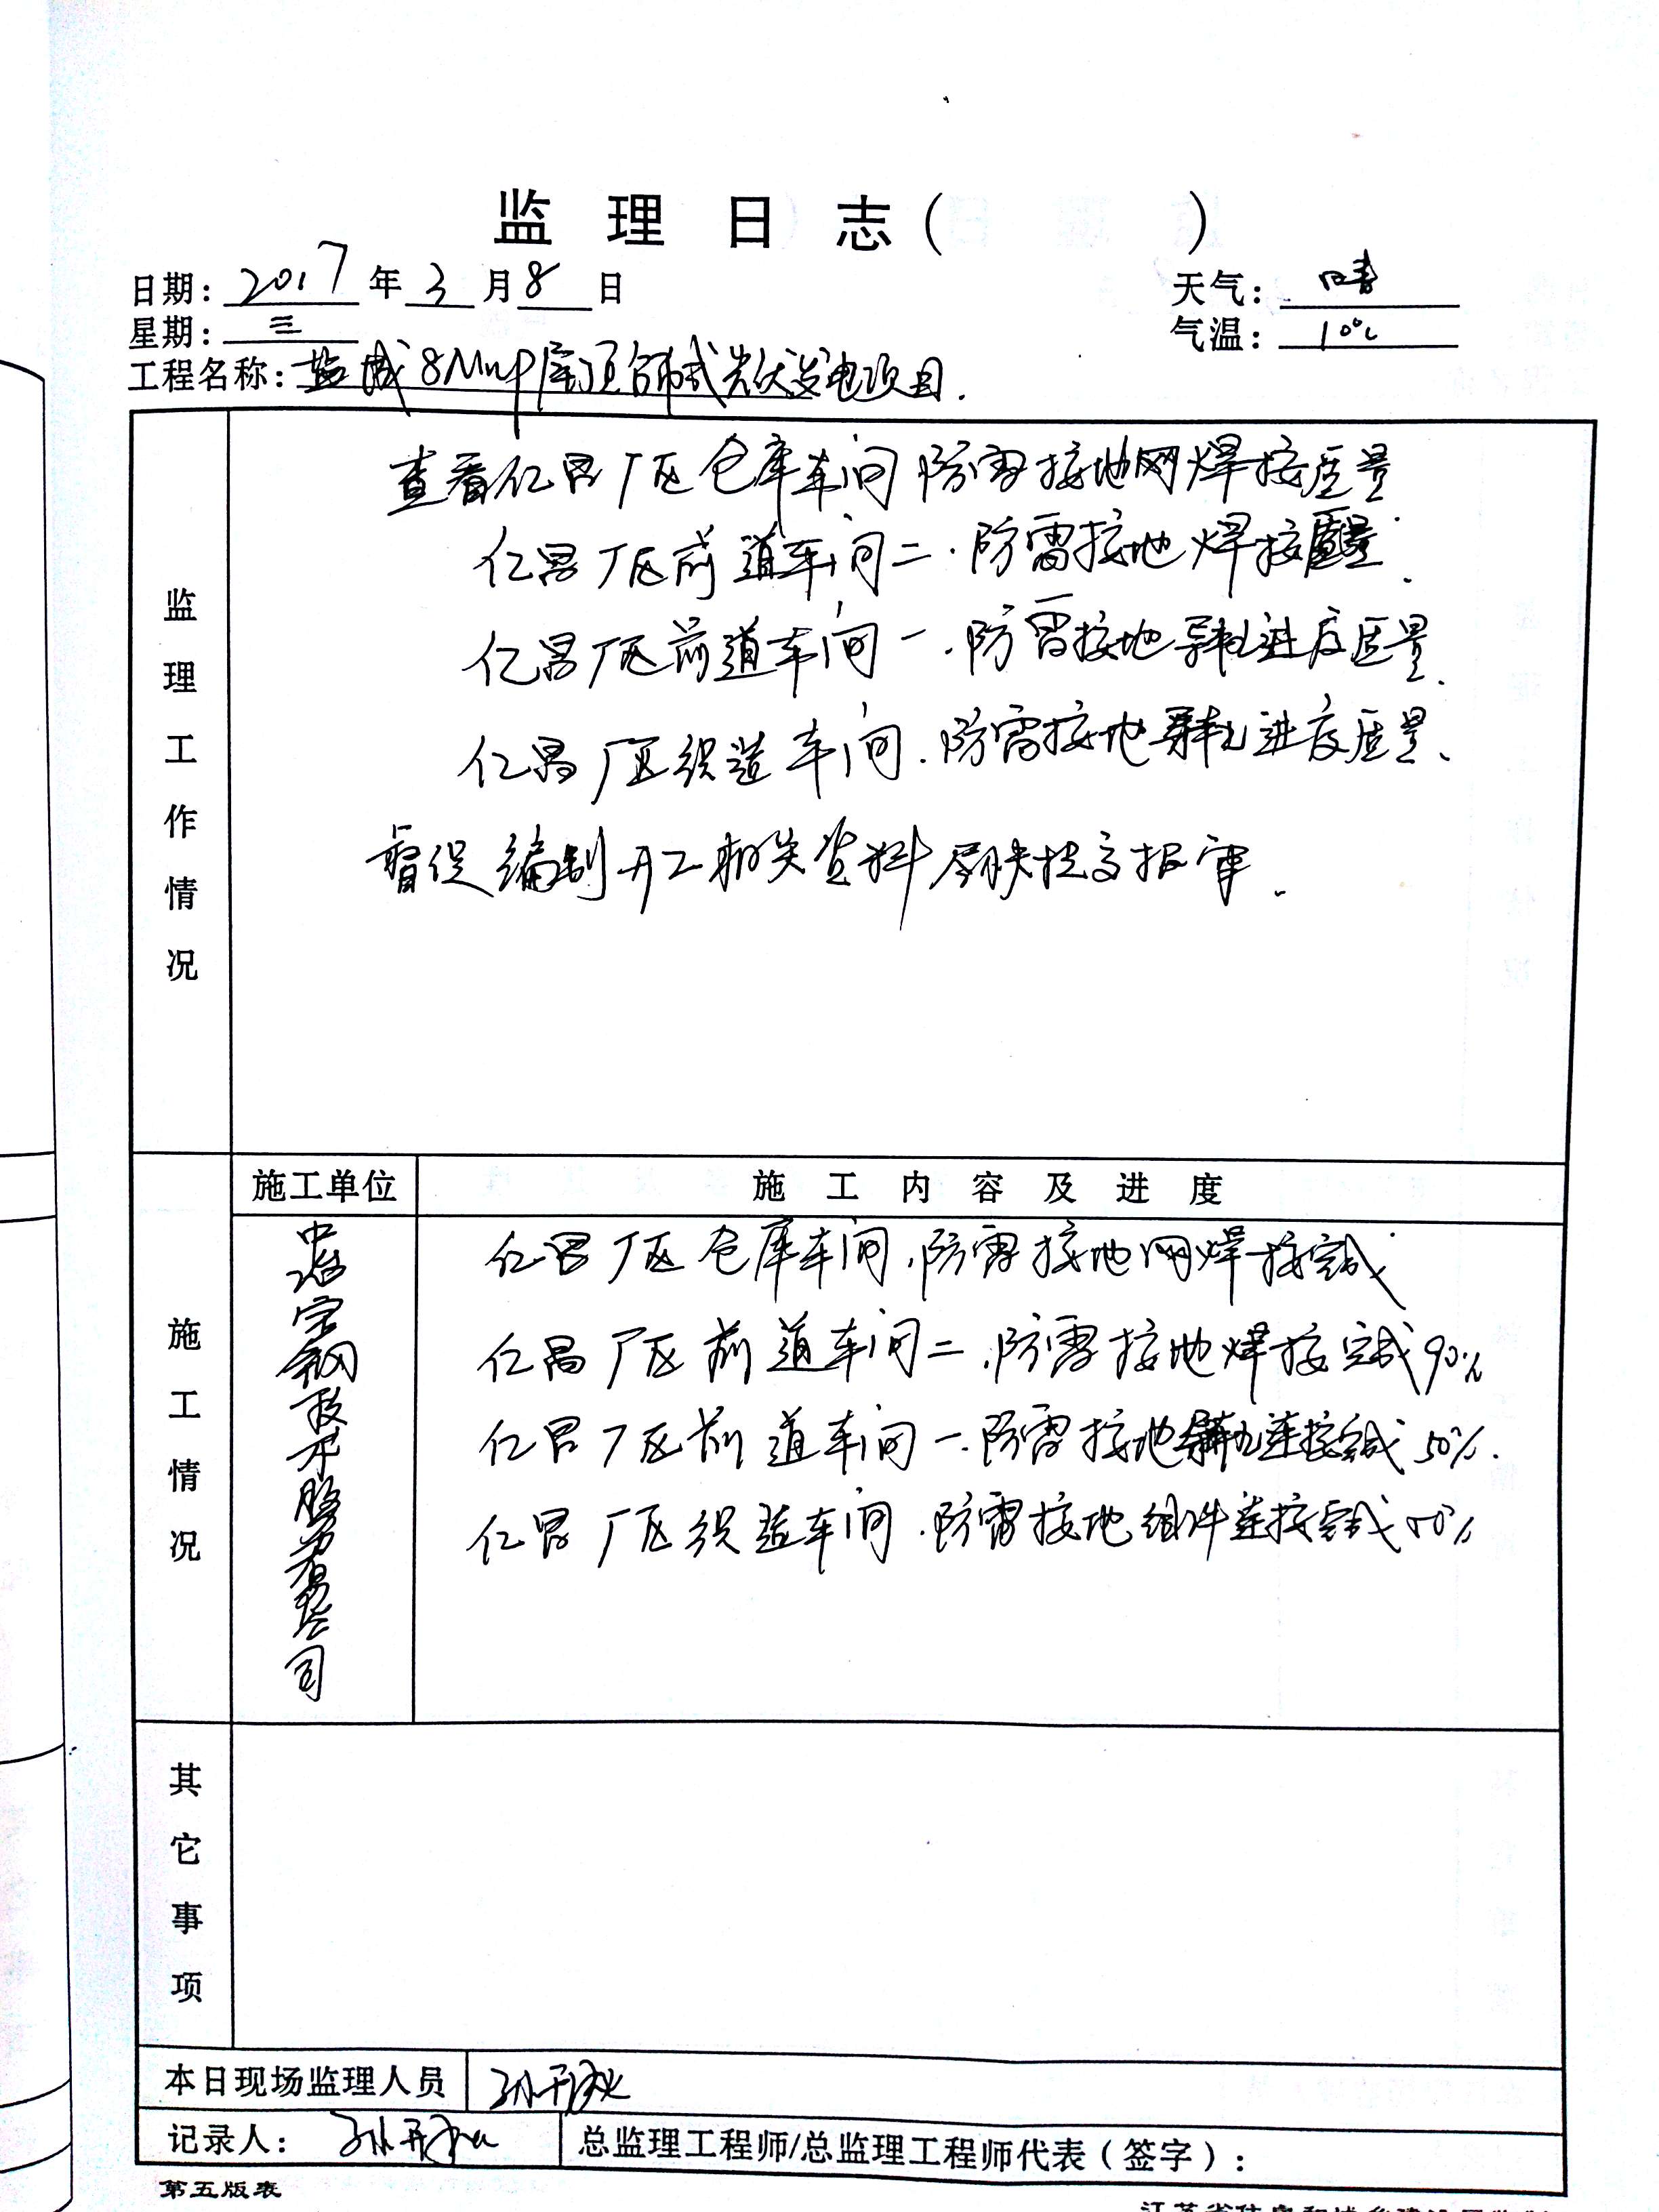 监理日志( )
日期：2017年3月8日 天气：晴
星期：三 气温：10℃
工程名称：盐城8Mwp屋顶分布式光伏发电项目.
监理工作情况
查看仁昌厂区仓库车间防雷接地网焊接质量
仁昌厂区前道车间二.防雷接地焊接质量.
仁昌厂区前道车间一.防雷接地导轨进度质量.
仁昌厂区织造车间.防雷接地导轨进度质量.
督促编制开工相关资料尽快提交报审.
施工情况
施工单位 施工内容及进度
中冶宝钢技术服务有限公司
仁昌厂区仓库车间.防雷接地网焊接完成
仁昌厂区前道车间二.防雷接地焊接完成90%
仁昌厂区前道车间一.防雷接地导轨连接完成50%.
仁昌厂区织造车间.防雷接地组件连接完成50%
其它事项
本日现场监理人员 孙开秋
记录人：孙开秋 总监理工程师/总监理工程师代表（签字）：
第五版表